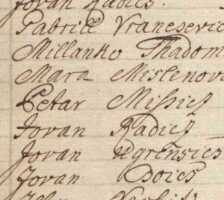 Jovan Radies
Patrice Vranesevic
Millanko Thadom
Mara Meslenov
Petar Missies
Jovan Radies
Jovan Ugrensies
Jovan Doies